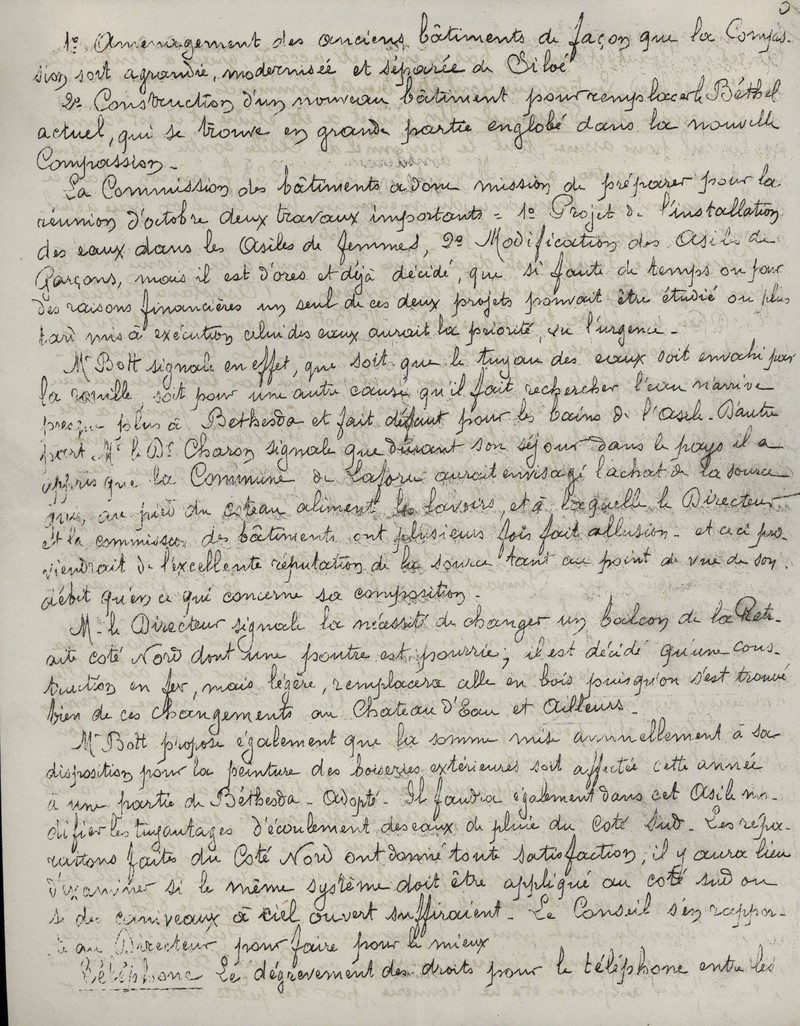 5
1º Aménagement des anciens bâtiments de façon que la Compas-
sion soit agrandie, modernisée et séparée de Siloé
2º Construction d'un nouveau bâtiment pour remplacer le Béthel
actuel, qui se trouve en grande partie englobé dans la nouvelle
Compassion -
La Commission des bâtiments a donc mission de préparer pour la
réunion d'octobre deux travaux importants = 1º Projet de l'installation
des eaux dans les Asiles de femmes, 2º Modification des Asiles de
Garçons, mais il est d'ores et déjà décidé, que si faute de temps ou pour
des raisons financières un seul de ces deux projets pouvait être étudié ou plus
tard mis à exécution celui des eaux aurait la priorité, vu l'urgence -
Mr Bott signale en effet, que soit que le tuyau des eaux soit envahi par
la rouille, soit pour une autre cause qu'il fait rechercher l'eau n'arrive
presque plus à Bethesda et fait défaut pour les bains de l'Asile - D'autre
part Mr le Dr Charon signale que durant son séjour dans le pays il a
appris que la Commune de Laforce aurait envisagé l'achat de la source
qui, au pied du coteau alimente les lavoirs, et à laquelle le Directeur
et la commission des bâtiments ont plusieurs fois fait allusion - et ceci pro-
viendrait de l'excellente réputation de la source tant au point de vue de son
débit qu'en ce qui concerne sa composition -
Mr le Directeur signale la nécessité de changer un balcon de la Retr-
aite coté Nord dont une poutre est pourrie; il est décidé qu'une cons-
truction en fer, mais légère, remplacera celle en bois puisqu'on s'est trouvé
bien de ces changements au Chateau d'Eau et Ailleurs -
Mr Bott propose également que la somme mise annuellement à sa
disposition pour la peinture des boiseries extérieures soit affectée cette année
à une partie de Béthesda - Adopté - Il faudra également dans cet Asile mo-
difier les tuyautages d'écoulement des eaux de pluie du coté Sud - Les répa-
rations faites du Coté Nord ont donné toute satisfaction, il y aura lieu
d'examiner si le même système doit être appliqué au coté sud ou
si des caniveaux à ciel ouvert suffiraient - Le Conseil s'en rappor-
te au Directeur pour faire pour le mieux
Téléphone Le dégrèvement des droits pour le téléphone entre les